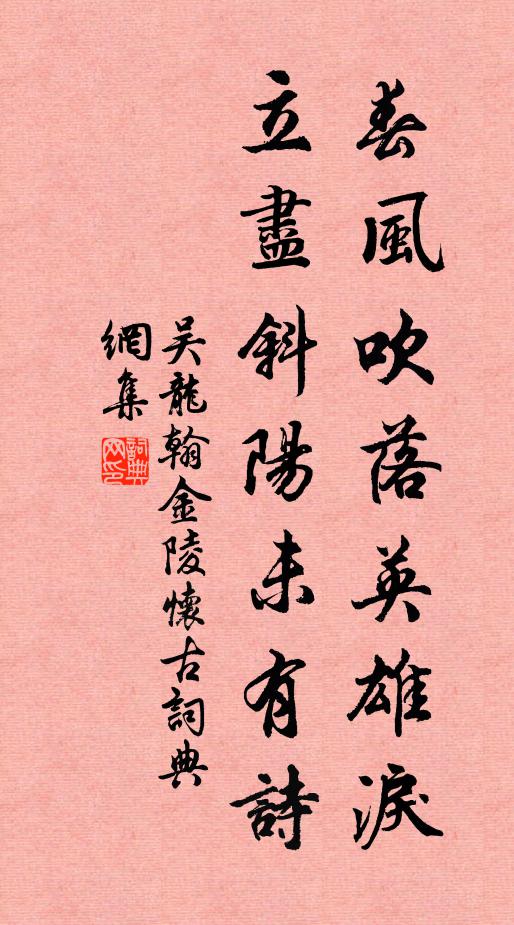 春風吹落英雄淚
立盡斜陽未有詩
吴龍翰金陵懷古詞典
網集
詞典
网印